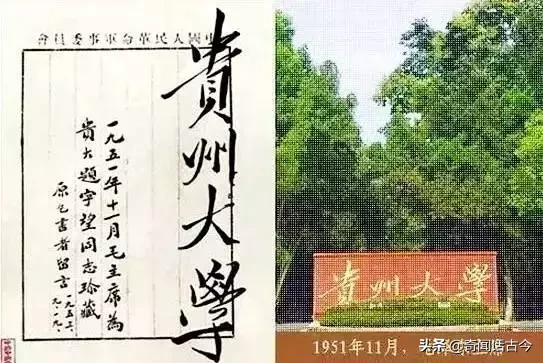 中國人民革命軍事委員會
貴州大學
一九五一年十一月毛主席為
貴大題字望同志珍藏
原乞書者留言
貴州大學
1951年11月，
头条 @奇闻皓古今